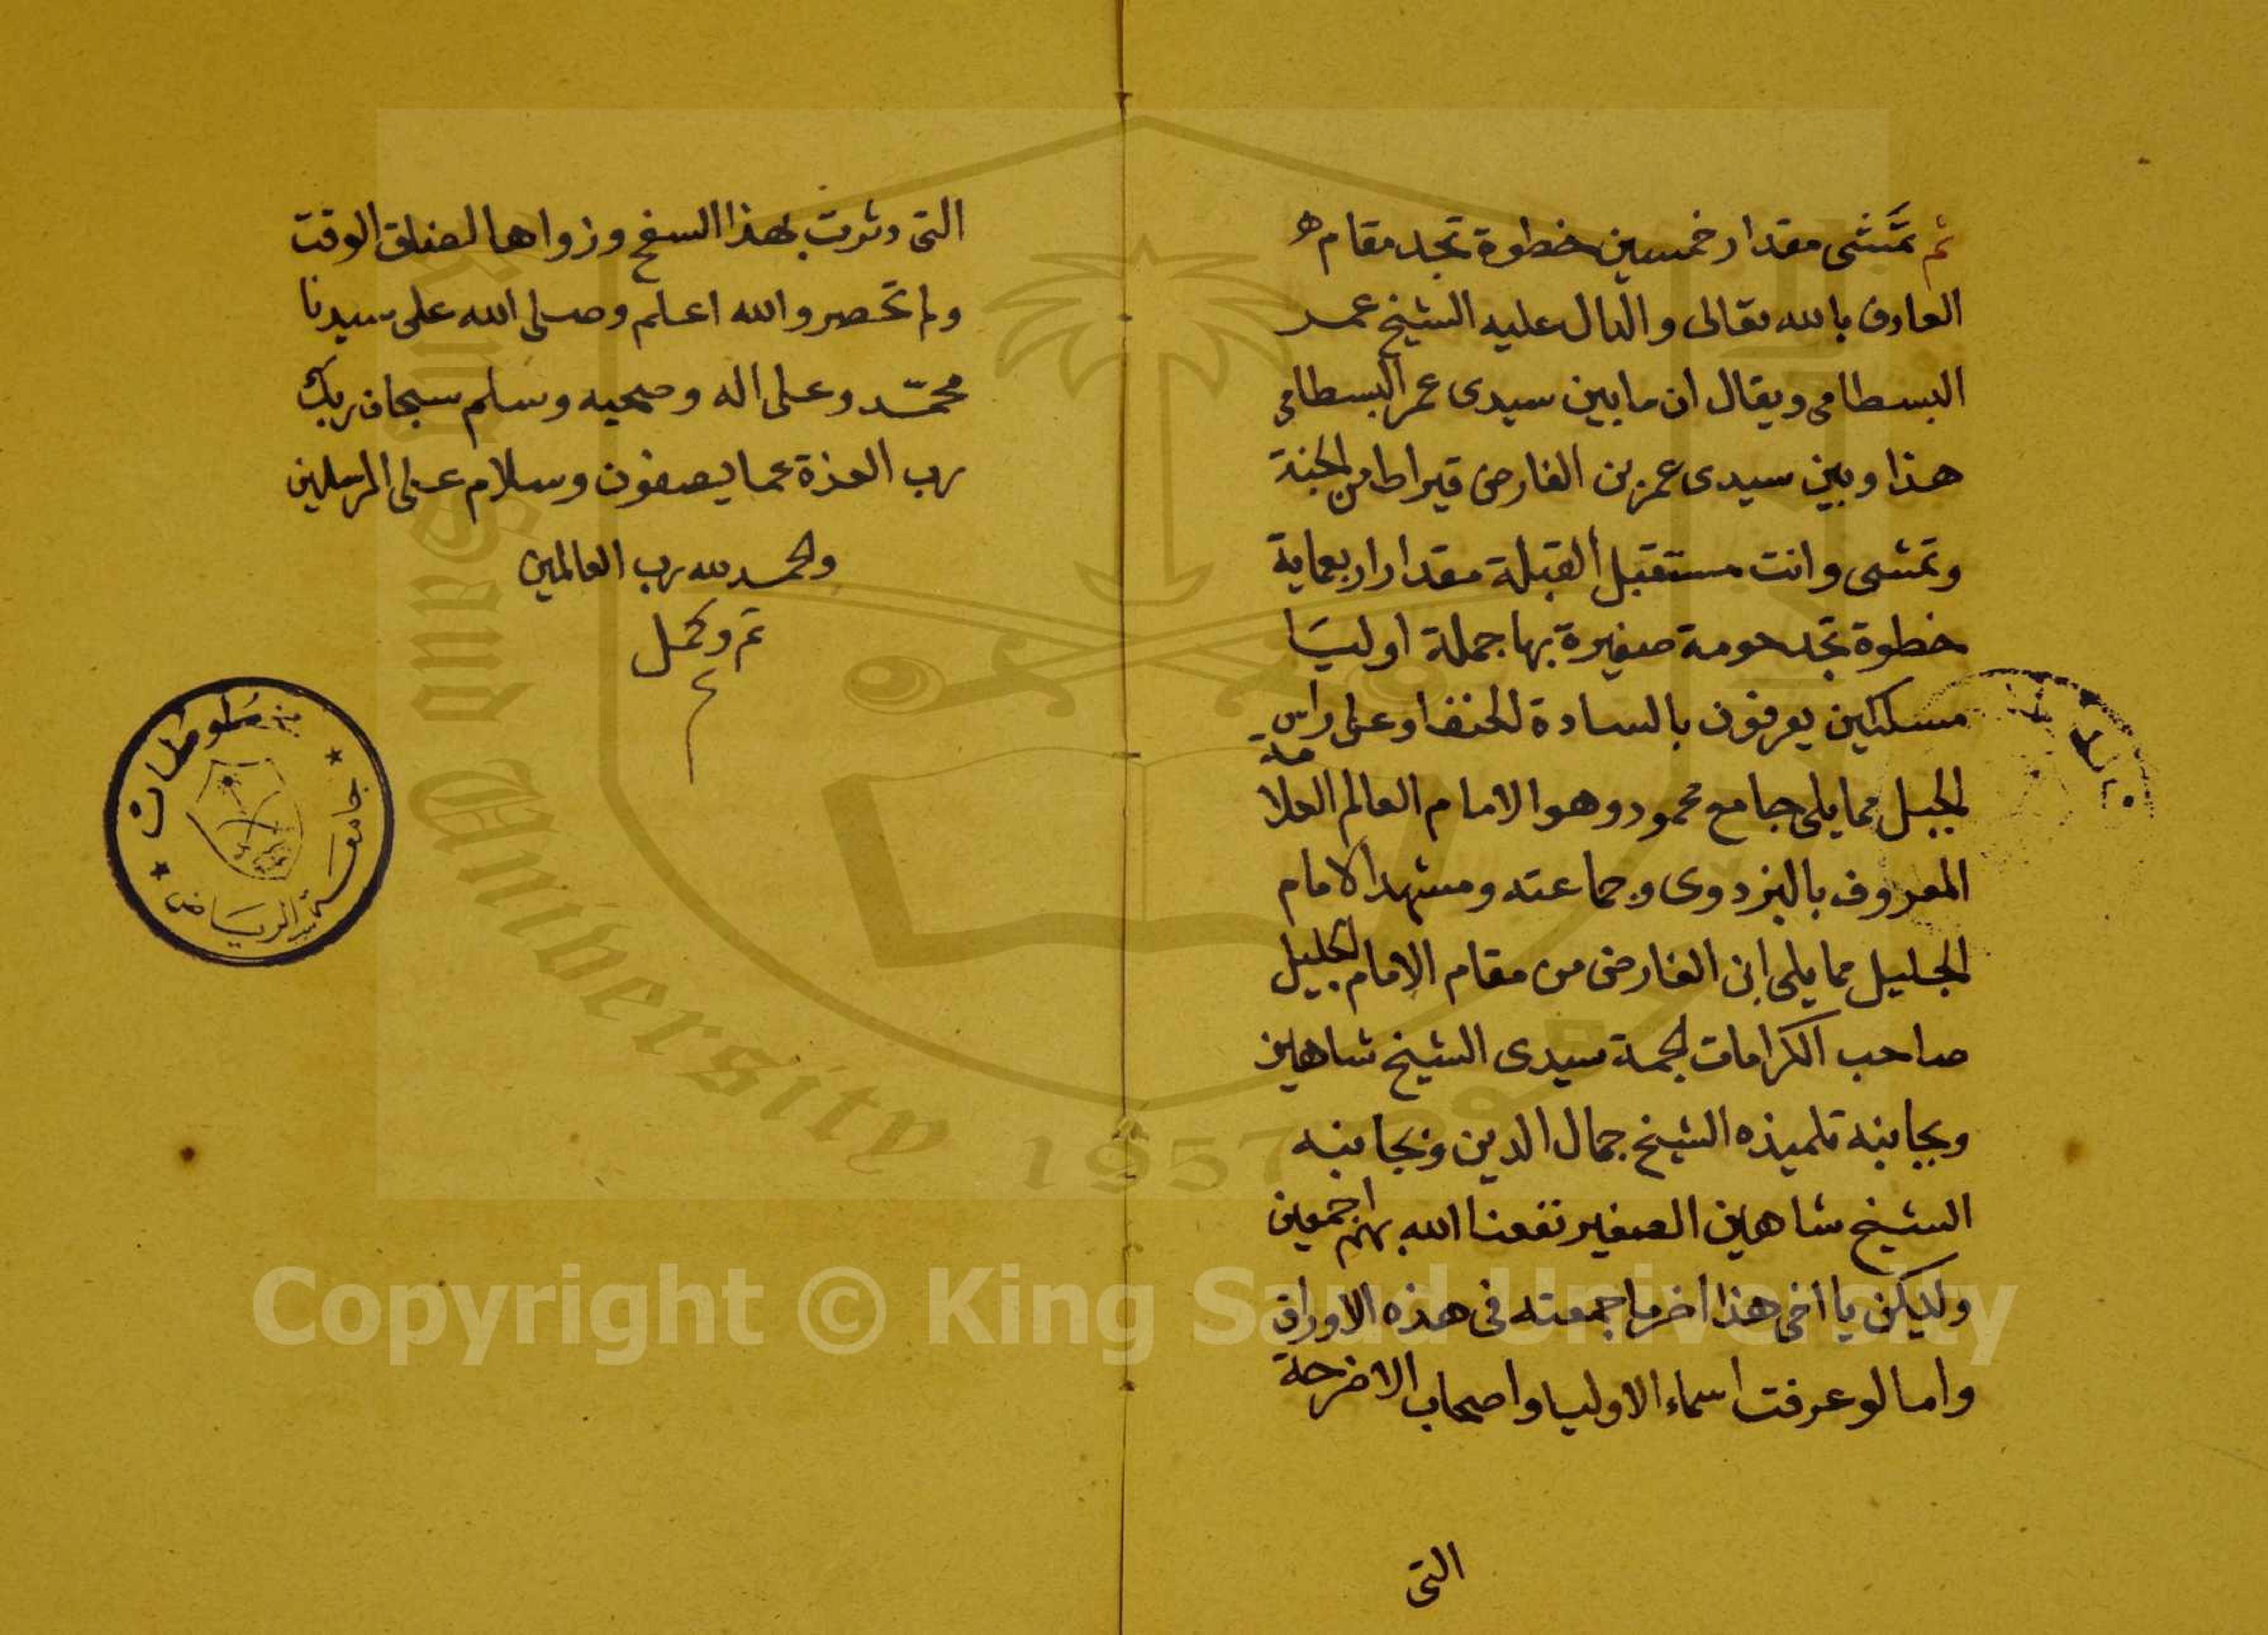 ثم تمشى مقدار خمسين خطوة تجد مقام
العارف بالله تعالى والدال عليه الشيخ عمر
البسطامى ويقال ان مابين سيدى عمر البسطامى
هذا وبين سيدى عمر بن الفارض قيراط من الجنة
وتمشى وانت مستقبل القبلة مقدار اربعماية
خطوة تجد حومة صغيرة بها جملة اوليا
مسلكين يعرفون بالسادة الحنفا وعلى راس
الجبل مما يلى جامع محمود وهو الامام العالم العلامة
المعروف بالبزدوى وجماعته ومشهد الامام
الجليل مما يلى ابن الفارض من مقام الامام الجليل
صاحب الكرامات الجمة سيدى الشيخ شاهين
وبجانبه تلميذه الشيخ جمال الدين وبجانبه
الشيخ شاهين الصغير نفعنا الله بهم اجمعين
وليكن يا أخى هذا اخر ما جمعته فى هذه الاوراق
واما لو عرفت اسماء الاوليا واصحاب الاضرحة
التى
التى دثرت بهذا السفح وزواها لضاق الوقت
ولم تحصر والله اعلم وصلى الله على سيدنا
محمد وعلى اله وصحبه وسلم سبحان ربك
رب العزة عما يصفون وسلام على المرسلين
والحمد لله رب العالمين
تم وكمل
م
مخطوطات
جامعة الرياض
King Saud University
1957
Copyright © King Saud University